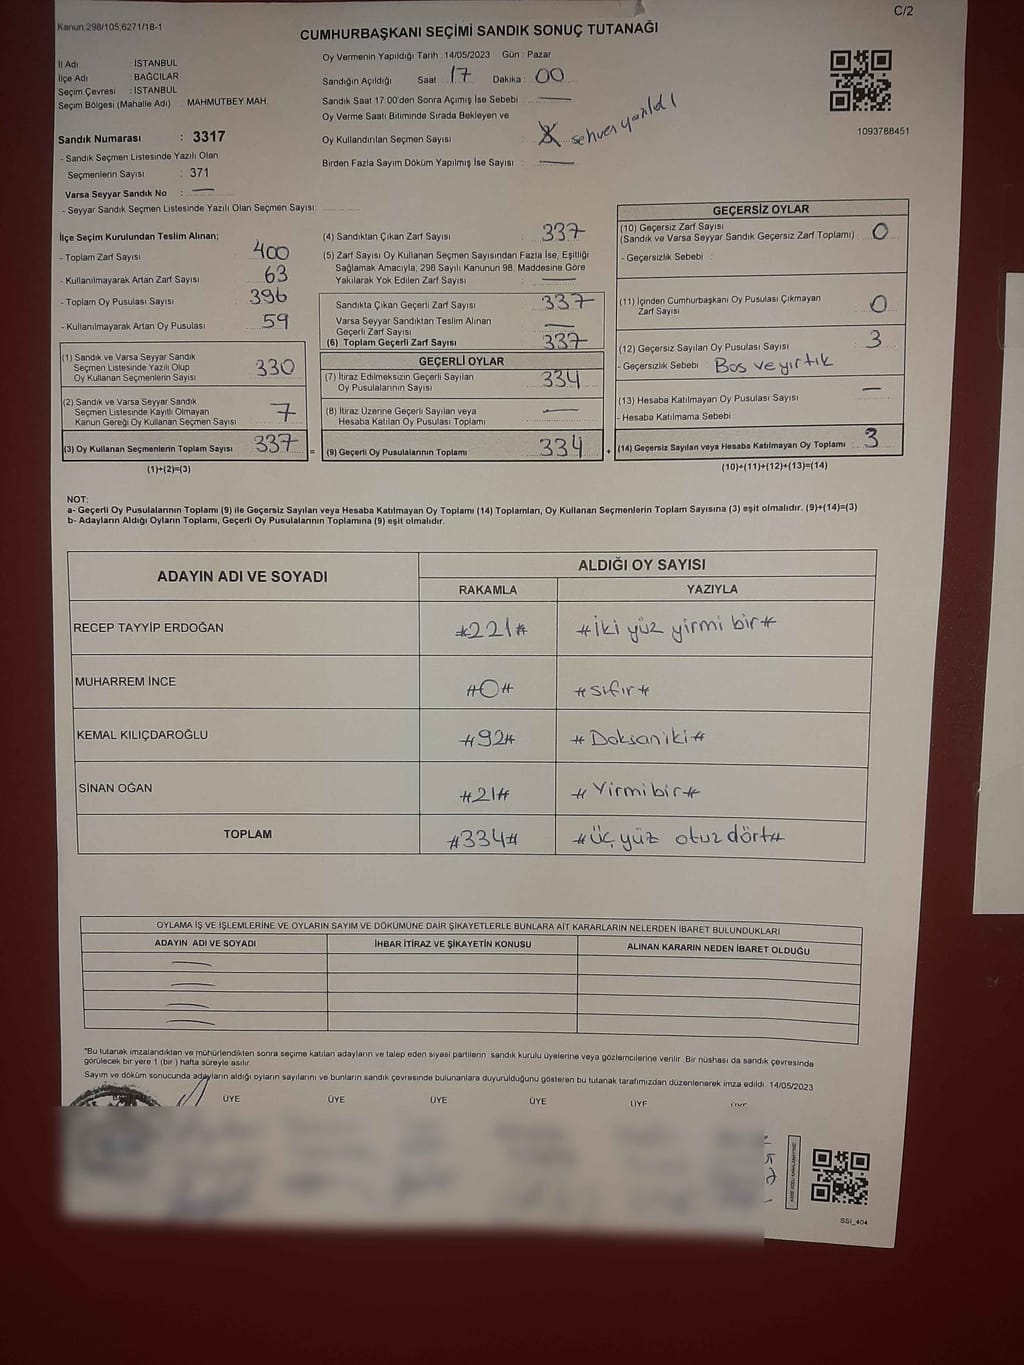 C/2
Kanun 298/105,6271/18-1
CUMHURBAŞKANI SEÇİMİ SANDIK SONUÇ TUTANAĞI
İl Adı : İSTANBUL
İlçe Adı BAĞCILAR
Seçim Çevresi : İSTANBUL
Seçim Bölgesi (Mahalle Adı) MAHMUTBEY MAH.
Sandık Numarası : 3317
- Sandık Seçmen Listesinde Yazılı Olan
Seçmenlerin Sayısı : 371
Varsa Seyyar Sandık No : —
- Seyyar Sandık Seçmen Listesinde Yazılı Olan Seçmen Sayısı: ..............
Oy Vermenin Yapıldığı Tarih : 14/05/2023 Gün : Pazar
Sandığın Açıldığı Saat : 17 Dakika : 00
Sandık Saat 17.00'den Sonra Açımış İse Sebebi : —
Oy Verme Saati Bitiminde Sırada Bekleyen ve
Oy Kullandırılan Seçmen Sayısı : sehven yazıldı
Birden Fazla Sayım Döküm Yapılmış İse Sayısı : —
1093788451
İlçe Seçim Kurulundan Teslim Alınan;
- Toplam Zarf Sayısı : 400
- Kullanılmayarak Artan Zarf Sayısı : 63
- Toplam Oy Pusulası Sayısı : 396
- Kullanılmayarak Artan Oy Pusulası : 59
(1) Sandık ve Varsa Seyyar Sandık
Seçmen Listesinde Yazılı Olup
Oy Kullanan Seçmenlerin Sayısı : 330
(2) Sandık ve Varsa Seyyar Sandık
Seçmen Listesinde Kayıtlı Olmayan
Kanun Gereği Oy Kullanan Seçmen Sayısı : 7
(3) Oy Kullanan Seçmenlerin Toplam Sayısı : 337 =
(1)+(2)=(3)
(4) Sandıktan Çıkan Zarf Sayısı : 337
(5) Zarf Sayısı Oy Kullanan Seçmen Sayısından Fazla İse, Eşitliği
Sağlamak Amacıyla; 298 Sayılı Kanunun 98. Maddesine Göre
Yakılarak Yok Edilen Zarf Sayısı : —
Sandıkta Çıkan Geçerli Zarf Sayısı : 337
Varsa Seyyar Sandıktan Teslim Alınan
Geçerli Zarf Sayısı : —
(6) Toplam Geçerli Zarf Sayısı : 337
GEÇERLİ OYLAR
(7) İtiraz Edilmeksizin Geçerli Sayılan
Oy Pusulalarının Sayısı : 334
(8) İtiraz Üzerine Geçerli Sayılan veya
Hesaba Katılan Oy Pusulası Toplamı : —
(9) Geçerli Oy Pusulalarının Toplamı : 334 +
GEÇERSİZ OYLAR
(10) Geçersiz Zarf Sayısı
(Sandık ve Varsa Seyyar Sandık Geçersiz Zarf Toplamı) : 0
- Geçersizlik Sebebi :
(11) İçinden Cumhurbaşkanı Oy Pusulası Çıkmayan
Zarf Sayısı : 0
(12) Geçersiz Sayılan Oy Pusulası Sayısı : 3
- Geçersizlik Sebebi : Bos ve yırtık
(13) Hesaba Katılmayan Oy Pusulası Sayısı : —
- Hesaba Katılmama Sebebi :
(14) Geçersiz Sayılan veya Hesaba Katılmayan Oy Toplamı : 3
(10)+(11)+(12)+(13)=(14)
NOT:
a- Geçerli Oy Pusulalarının Toplamı (9) ile Geçersiz Sayılan veya Hesaba Katılmayan Oy Toplamı (14) Toplamları, Oy Kullanan Seçmenlerin Toplam Sayısına (3) eşit olmalıdır. (9)+(14)=(3)
b- Adayların Aldığı Oyların Toplamı, Geçerli Oy Pusulalarının Toplamına (9) eşit olmalıdır.
ADAYIN ADI VE SOYADI ALDIĞI OY SAYISI
RAKAMLA YAZIYLA
RECEP TAYYİP ERDOĞAN #221# #İki yüz yirmi bir#
MUHARREM İNCE #0# #sıfır#
KEMAL KILIÇDAROĞLU #92# #Doksaniki#
SİNAN OĞAN #21# #Yirmibir#
TOPLAM #334# #üç yüz otuz dört#
OYLAMA İŞ VE İŞLEMLERİNE VE OYLARIN SAYIM VE DÖKÜMÜNE DAİR ŞİKAYETLERLE BUNLARA AİT KARARLARIN NELERDEN İBARET BULUNDUKLARI
ADAYIN ADI VE SOYADI İHBAR İTİRAZ VE ŞİKAYETİN KONUSU ALINAN KARARIN NEDEN İBARET OLDUĞU
"Bu tutanak imzalandıktan ve mühürlendikten sonra seçime katılan adayların ve talep eden siyasi partilerin sandık kurulu üyelerine veya gözlemcilerine verilir. Bir nüshası da sandık çevresinde
görülecek bir yere 1 (bir) hafta süreyle asılır
Sayım ve döküm sonucunda adayların aldığı oyların sayılarını ve bunların sandık çevresinde bulunanlara duyurulduğunu gösteren bu tutanak tarafımızdan düzenlenerek imza edildi. 14/05/2023
ÜYE ÜYE ÜYE ÜYE ÜYE
SSI_404